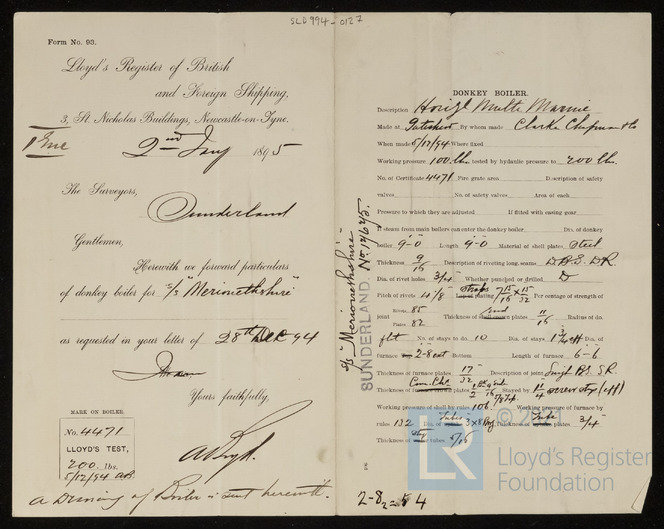 SLD994-0127
Form No. 93.
Lloyd's Register of British
and Foreign Shipping,
3, St. Nicholas Buildings, Newcastle-on-Tyne.
2nd Jany 1895
The Surveyors,
Sunderland
Gentlemen,
Herewith we forward particulars
of donkey boiler for S/S "Merionethshire"
as requested in your letter of 28th Dec 94
Yours faithfully,
MARK ON BOILER.
No. 4471
LLOYD'S TEST,
200 lbs.
5/12/94 AB.
A Drawing of Boiler is sent herewith.
S/S Merionethshire
SUNDERLAND. No. 14625.
DONKEY BOILER.
Description Horizl Multi Marine
Made at Gateshead By whom made Clarke Chapman & Co
When made 5/12/94 Where fixed
Working pressure 100 lbs. tested by hydraulic pressure to 200 lbs.
No. of Certificate 4471 Fire grate area Description of safety
valves No. of safety valves Area of each
Pressure to which they are adjusted If fitted with easing gear
If steam from main boilers can enter the donkey boiler Dia. of donkey
boiler 9-0 Length 9-0 Material of shell plates Steel
Thickness 9/16 Description of riveting long. seams D.B.S. D.R.
Dia. of rivet holes 3/4 Whether punched or drilled D
Pitch of rivets 4 1/8 Lap of plating Straps 7 15/16 x 15/32 Per centage of strength
of joint Rivets 85 Thickness of shell crown plates end 11/16 Radius of do.
Plates 82
flat No. of stays to do. 10 Dia. of stays 1 3/4 eff Dia. of
furnace 2-8 out Bottom Length of furnace 6-6
Thickness of furnace plates 17/32 Description of joint Singl BS. S.R.
Thickness of furnace crown plates Com. Chr. Stayed by 1 1/4 screw stays (eff)
Working pressure of shell by rules 106 Working pressure of furnace by
rules 132 Dia. of Tubes 3 x 8 Thickness of Tube plates 3/4
Thickness of tubes 5/16
2-8
© 2021
LR
Lloyd's Register
Foundation